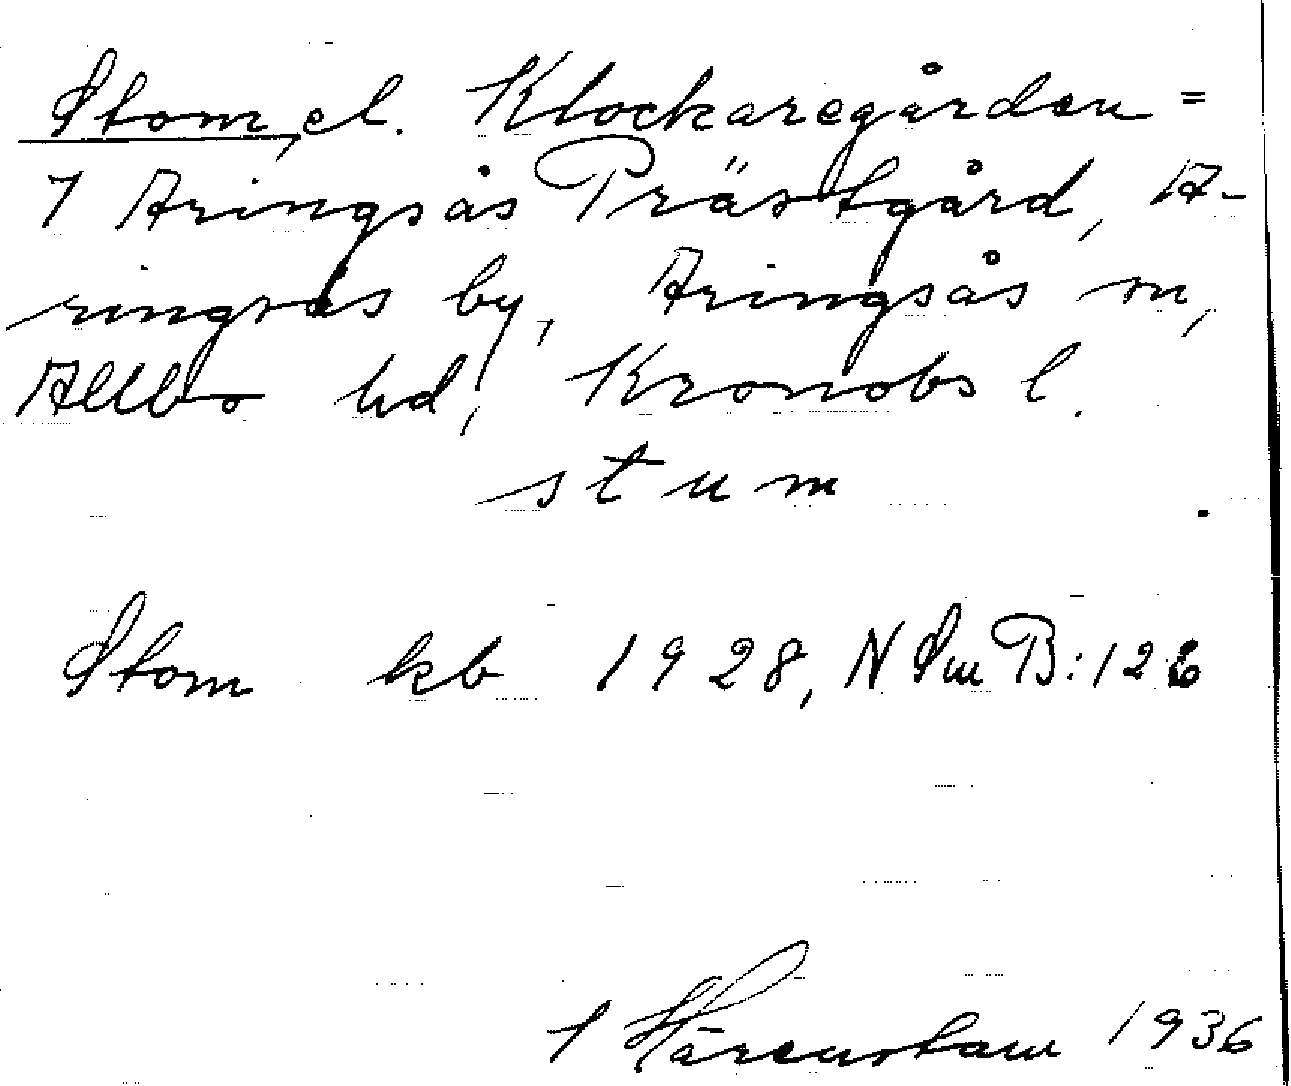 Stom, el. Klockaregården =
7 Aringsås Prästgård, A-
ringsås by, Aringsås sn,
Allbo hd, Kronobs l.
stum
Stom kb 1928, N Sm B: 126
Härenstam 1936